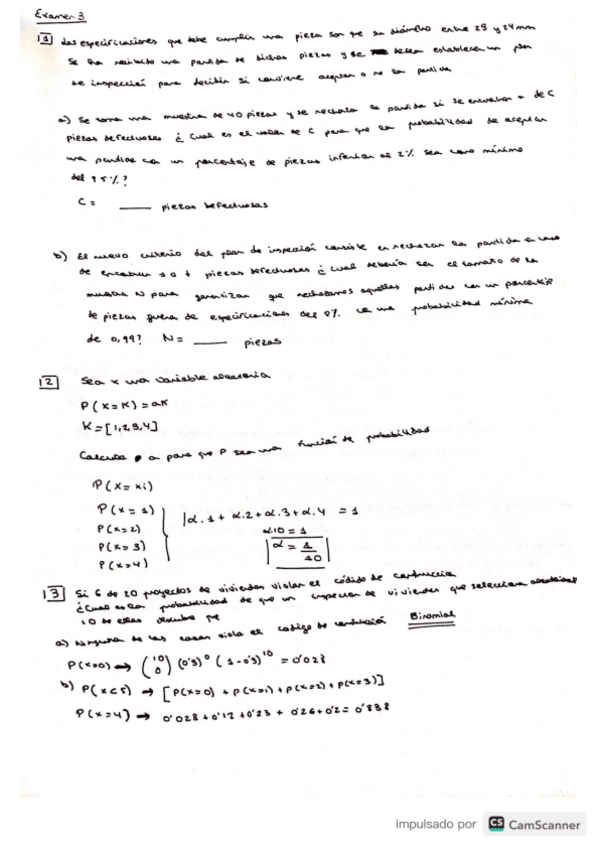 Examen 3
1 Las especificaciones que debe cumplir una pieza son que su diámetro entre 23 y 24 mm
Se ha recibido una partida de dichas piezas y se desea establecer un plan
de inspección para decidir si conviene aceptar o no la partida
a) Se toma una muestra de 40 piezas y se rechaza la partida si se encuentran + de C
piezas defectuosas ¿Cual es el valor de C para que la probabilidad de aceptar
una partida con un porcentaje de piezas inferior al 2% sea como mínimo
del 95%?
C = ____ piezas defectuosas
b) El nuevo criterio del plan de inspección consiste en rechazar la partida en caso
de encontrar 1 o + piezas defectuosas ¿cual debería ser el tamaño de la
muestra N para garantizar que rechazamos aquellas partidas con un porcentaje
de piezas fuera de especificaciones del 8% con una probabilidad mínima
de 0,99? N = ____ piezas
2 Sea x una variable aleatoria
P(x=K) = αK
K = [1,2,3,4]
Calcula a para que P sea una función de probabilidad
P(x=xi)
P(x=1)
P(x=2)
P(x=3)
P(x=4)
α.1 + α.2 + α.3 + α.4 = 1
α.10 = 1
α = 1/10
3 Si 6 de 20 proyectos de viviendas violan el código de construcción
¿Cual es la probabilidad de que un inspector de viviendas que selecciona aleatoriamente
10 de ellas descubra que
a) Ninguna de las casas viola el codigo de construcción Binomial
P(x=0) → (10 0) (0'3)^0 (1-0'3)^10 = 0'028
b) P(x<5) → [P(x=0) + P(x=1) + P(x=2) + P(x=3)]
P(x=4) → 0'028 + 0'12 + 0'23 + 0'26 + 0'2 = 0'838
impulsado por CS CamScanner